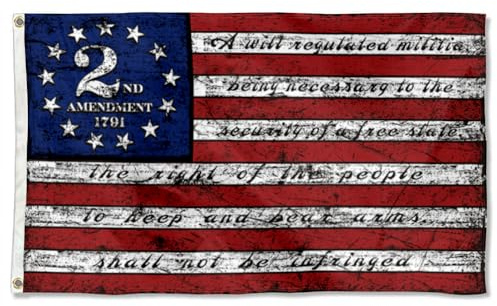 2ND
AMENDMENT
1791
A well regulated militia
being necessary to the
security of a free state
the right of the people
to keep and bear arms
shall not be infringed